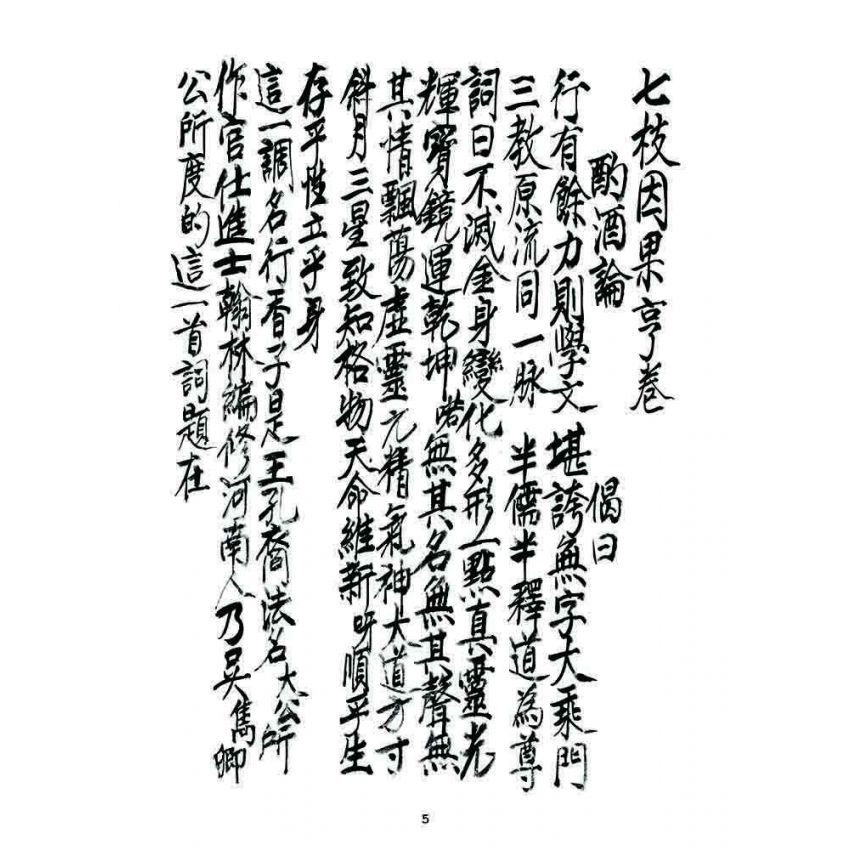 七枝因果亨卷
酌酒論 偈曰
行有餘力則學文 堪誇無字大乘門
三教原流同一脉 半儒半釋道為尊
詞曰不滅金身變化多形一點真靈光
輝寶鏡運乾坤喏無其名無其聲無
其情飄蕩虛靈元精氣神大道方寸
斜月三星致知格物天命維新呀順乎生
存乎性立乎身
這一調名行香子是王孔裔法名大公所
作官仕進士翰林編修河南人乃吳雋卿
公所度的這一首詞題在
5